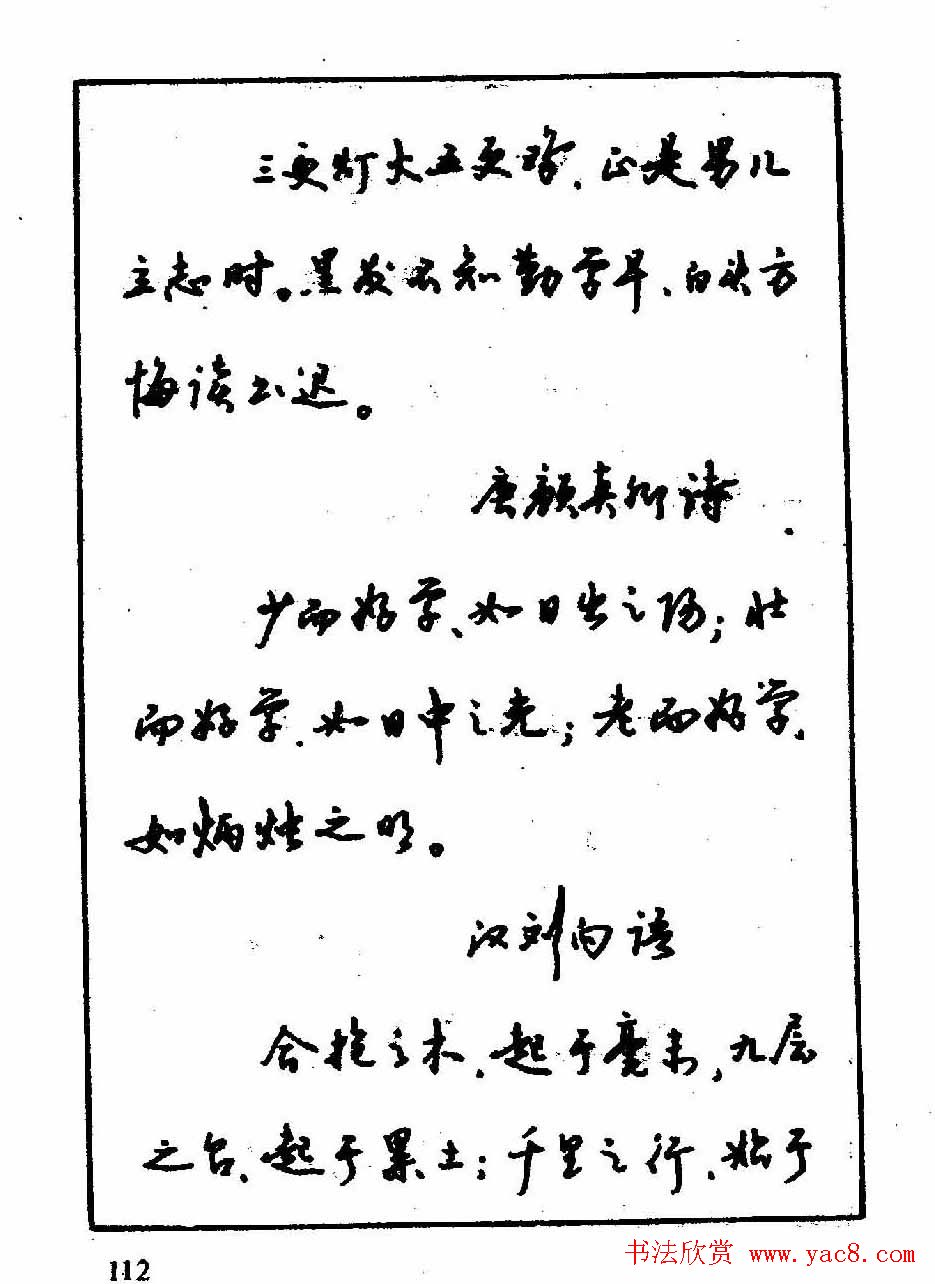 三更灯火五更鸡，正是男儿
立志时。黑发不知勤学早，白头方
悔读书迟。
唐颜真卿诗
少而好学，如日出之阳；壮
而好学，如日中之光；老而好学，
如炳烛之明。
汉刘向语
合抱之木，起于毫末，九层
之台，起于累土；千里之行，始于
112
书法欣赏 www.yac8.com